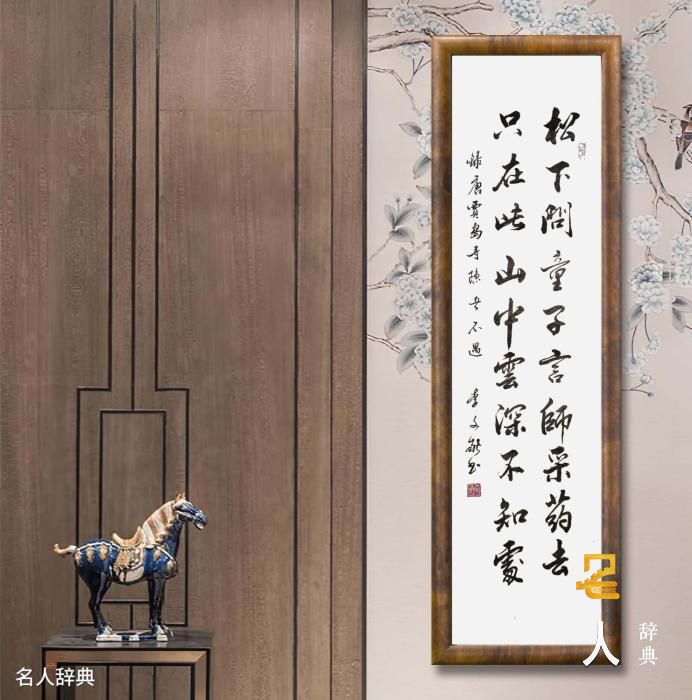 松下問童子言師采药去
只在此山中雲深不知處
錄唐賈島尋隐者不遇 李文敏书
名人
辞典
名人辞典